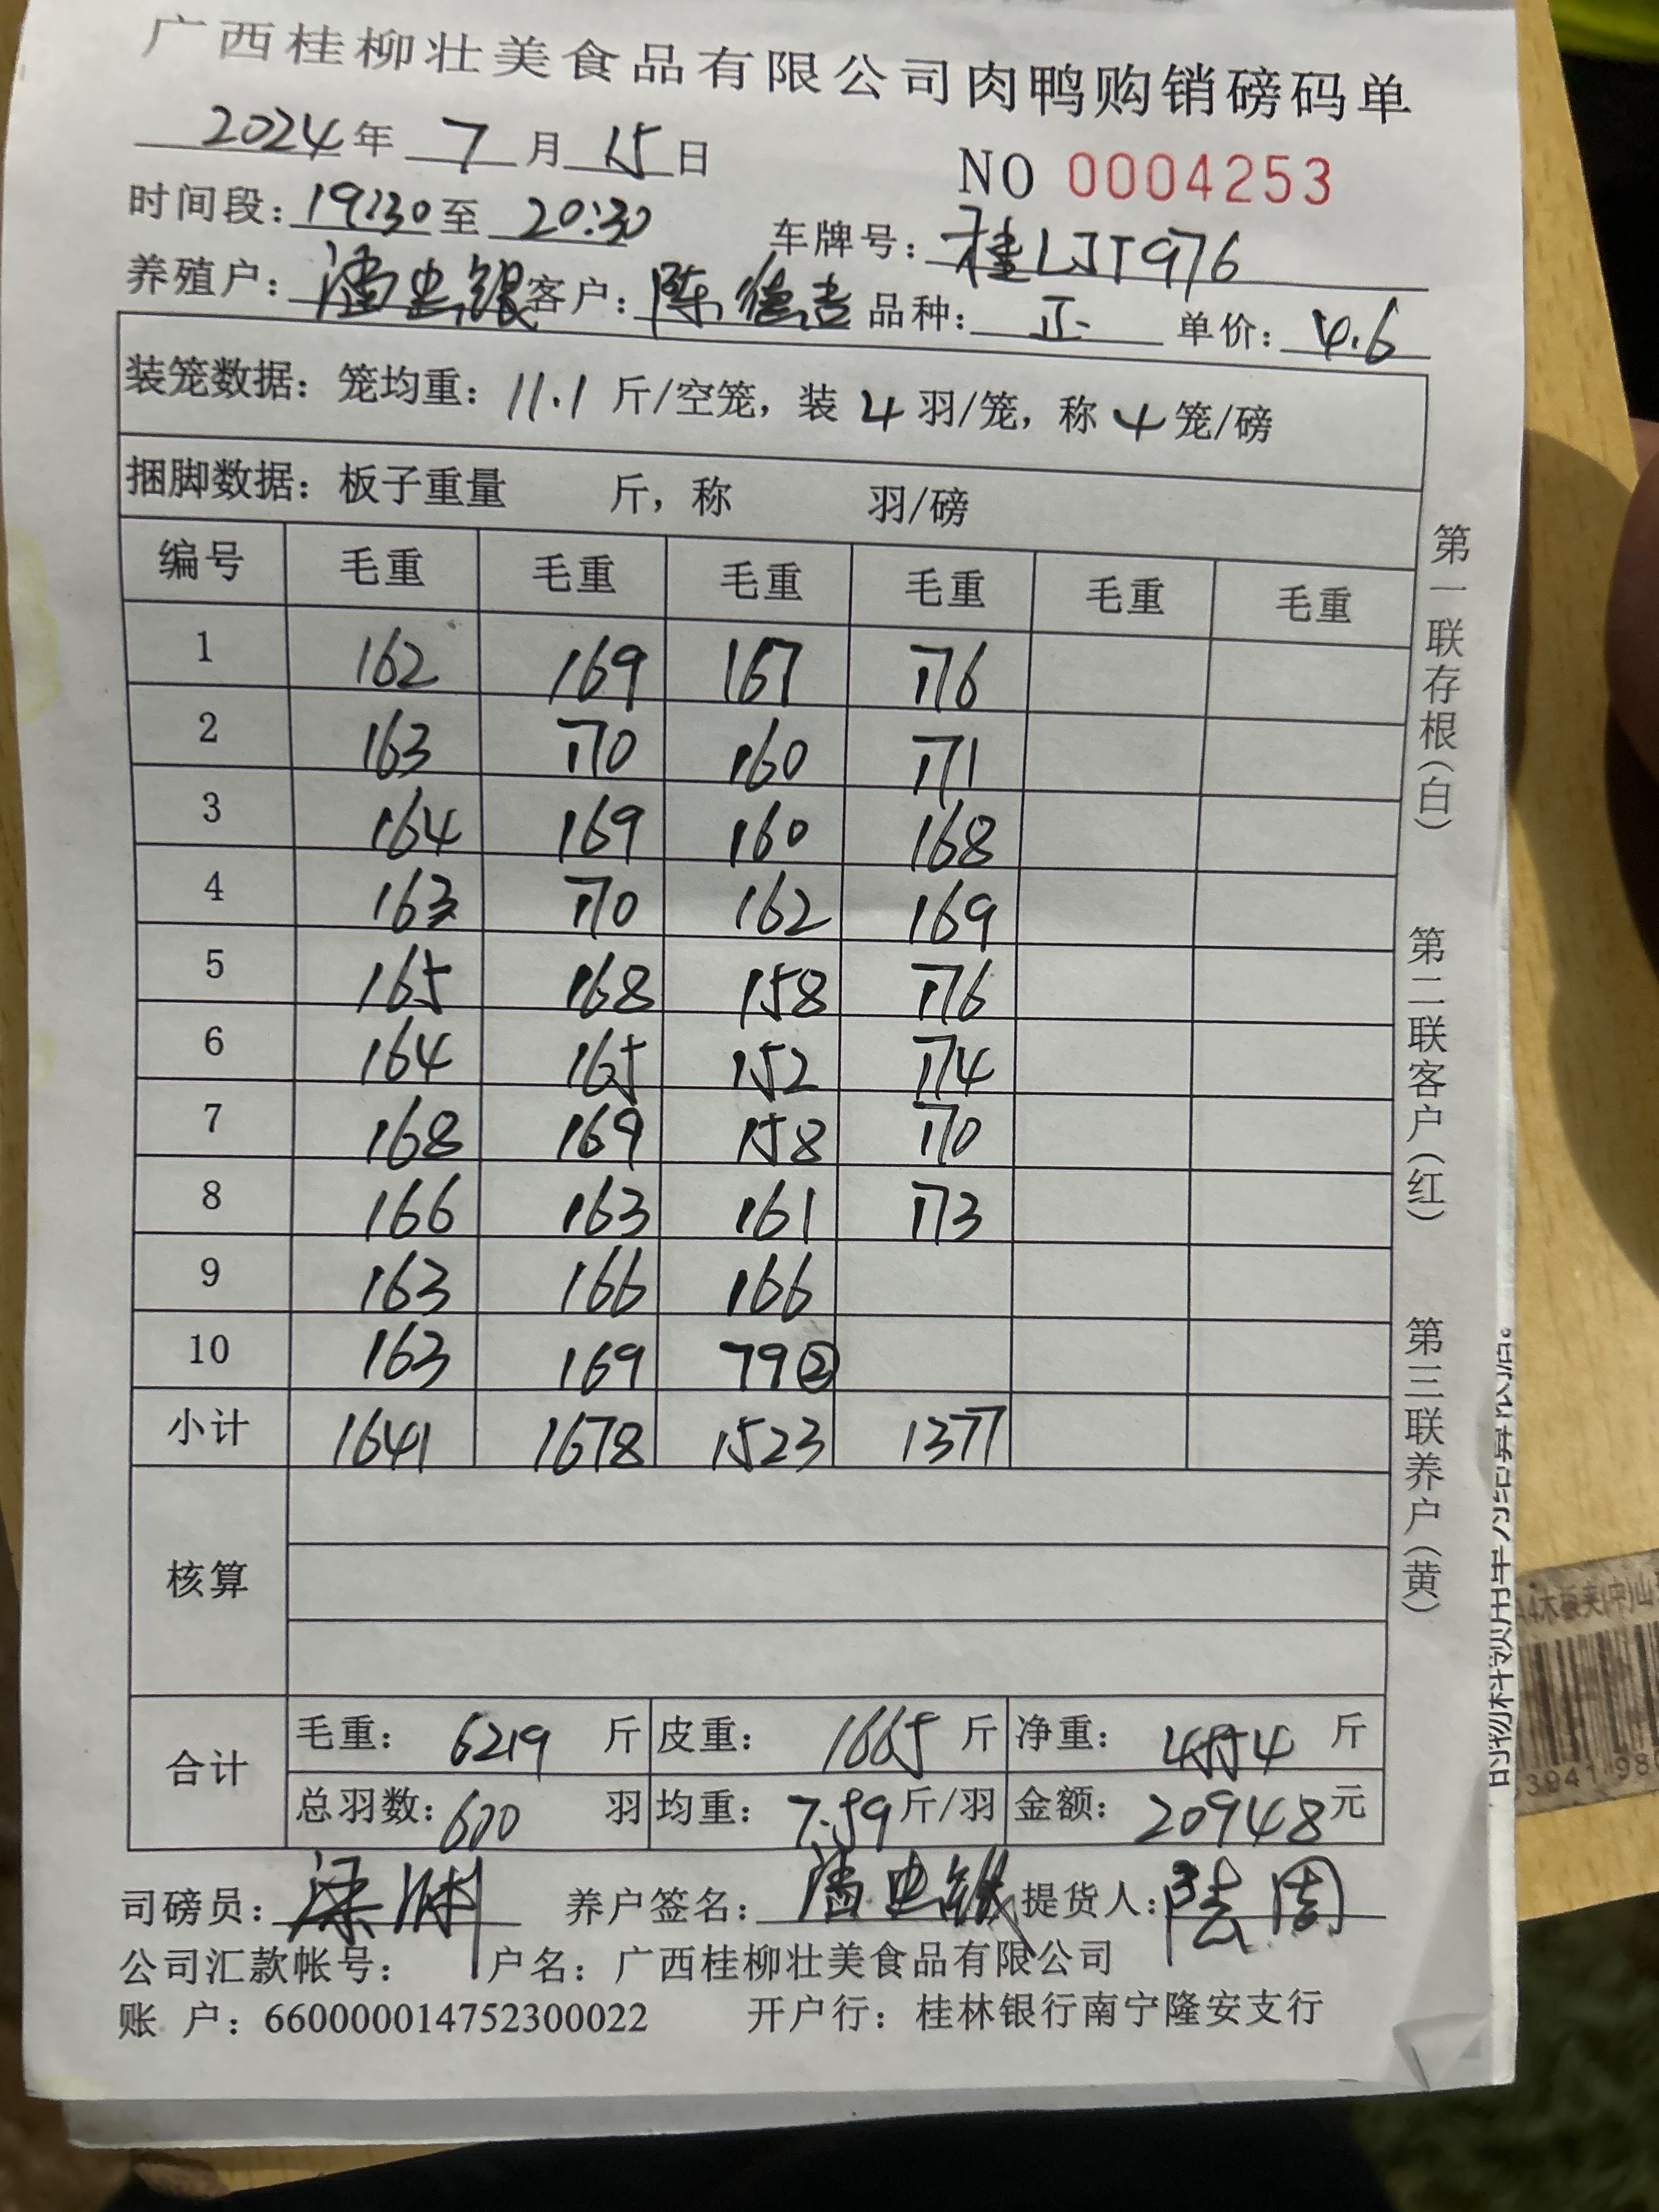 广西桂柳壮美食品有限公司肉鸭购销磅码单
2024年 7月 15日 NO 0004253
时间段：19:30至 20:30 车牌号：桂LJT976
养殖户：潘忠银 客户：陈德吉 品种：正 单价：4.6
装笼数据：笼均重：11.1斤/空笼，装4羽/笼，称4笼/磅
捆脚数据：板子重量 斤，称 羽/磅
编号 毛重 毛重 毛重 毛重 毛重 毛重
1 162 169 167 176
2 163 170 160 171
3 164 169 160 168
4 163 170 162 169
5 165 168 158 176
6 164 165 152 174
7 168 169 158 170
8 166 163 161 173
9 163 166 166
10 163 169 79②
小计 1641 1678 1523 1377
核算
合计
毛重：6219斤 皮重：1665斤 净重：4554斤
总羽数：600羽 均重：7.59斤/羽 金额：20948元
司磅员：梁 养户签名：潘忠银 提货人：陆周
公司汇款帐号： 户名：广西桂柳壮美食品有限公司
账 户：660000014752300022 开户行：桂林银行南宁隆安支行
第一联存根（白）
第二联客户（红）
第三联养户（黄）
A4木板夹(中)山